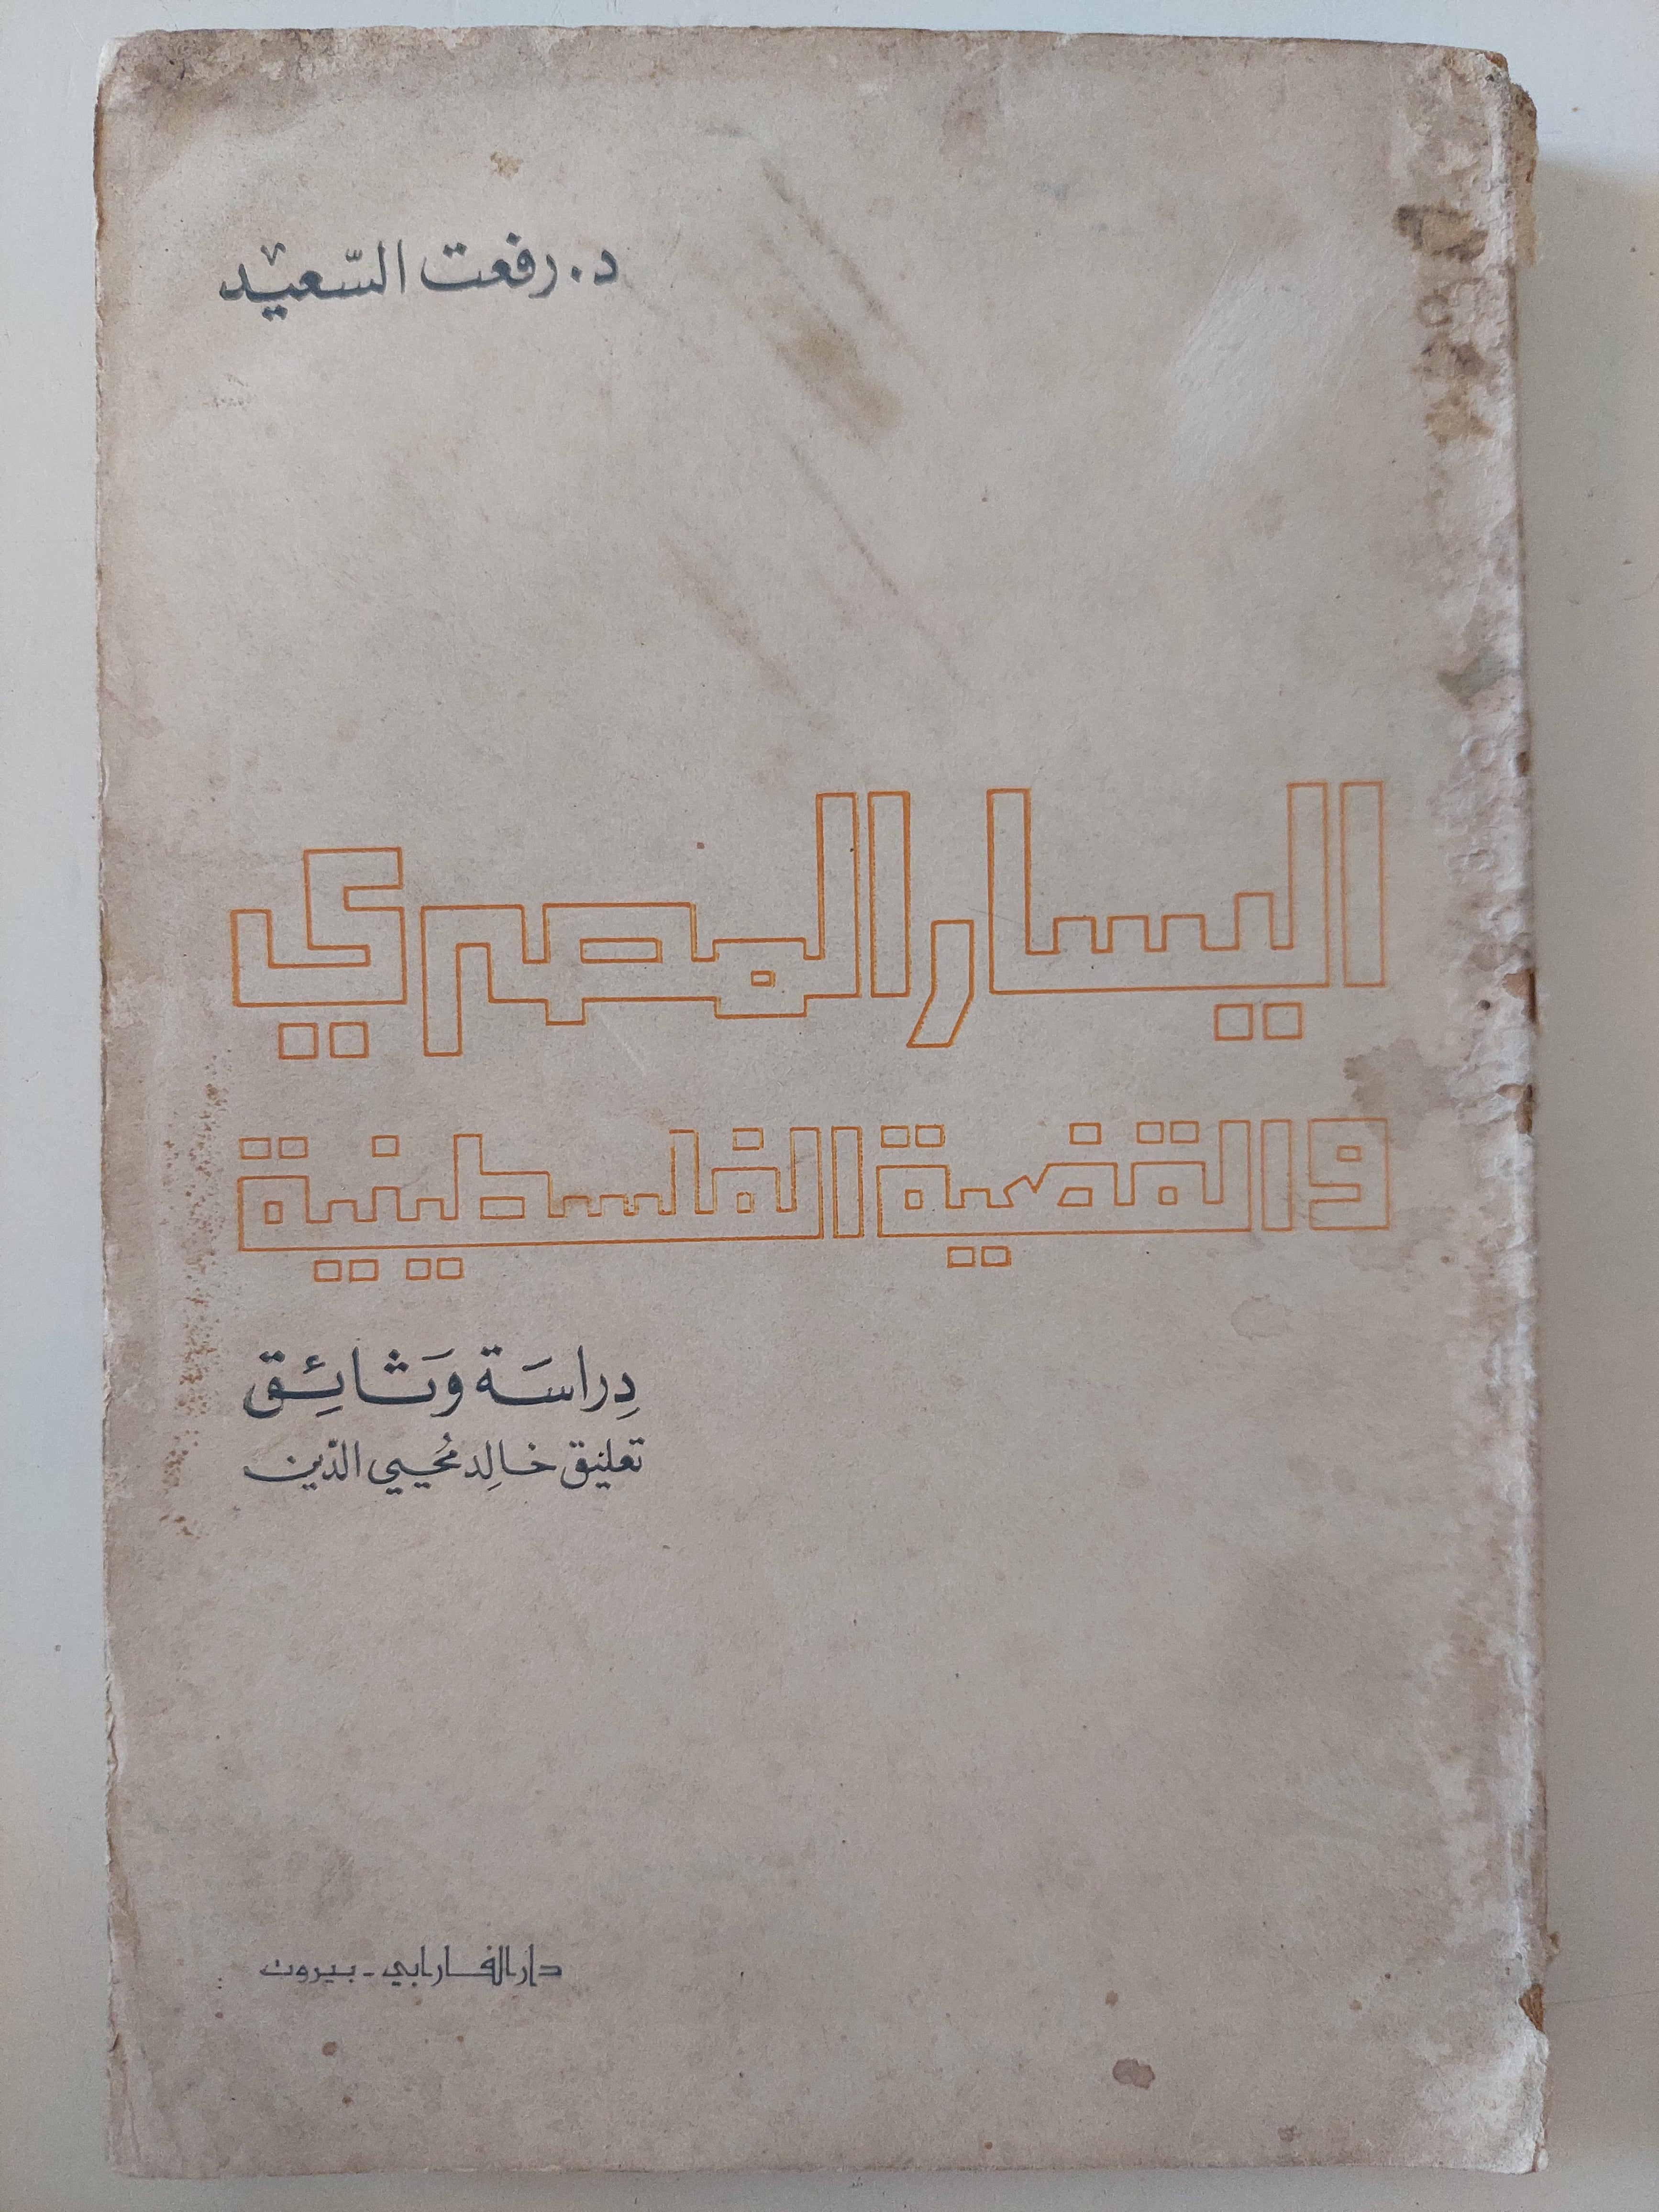 د. رفعت السّعيد
اليسار المصري
والقضية الفلسطينية
دِراسَة وَثائِق
تعليق خالِد مُحيي الدّين
دار الفارابي - بيروت